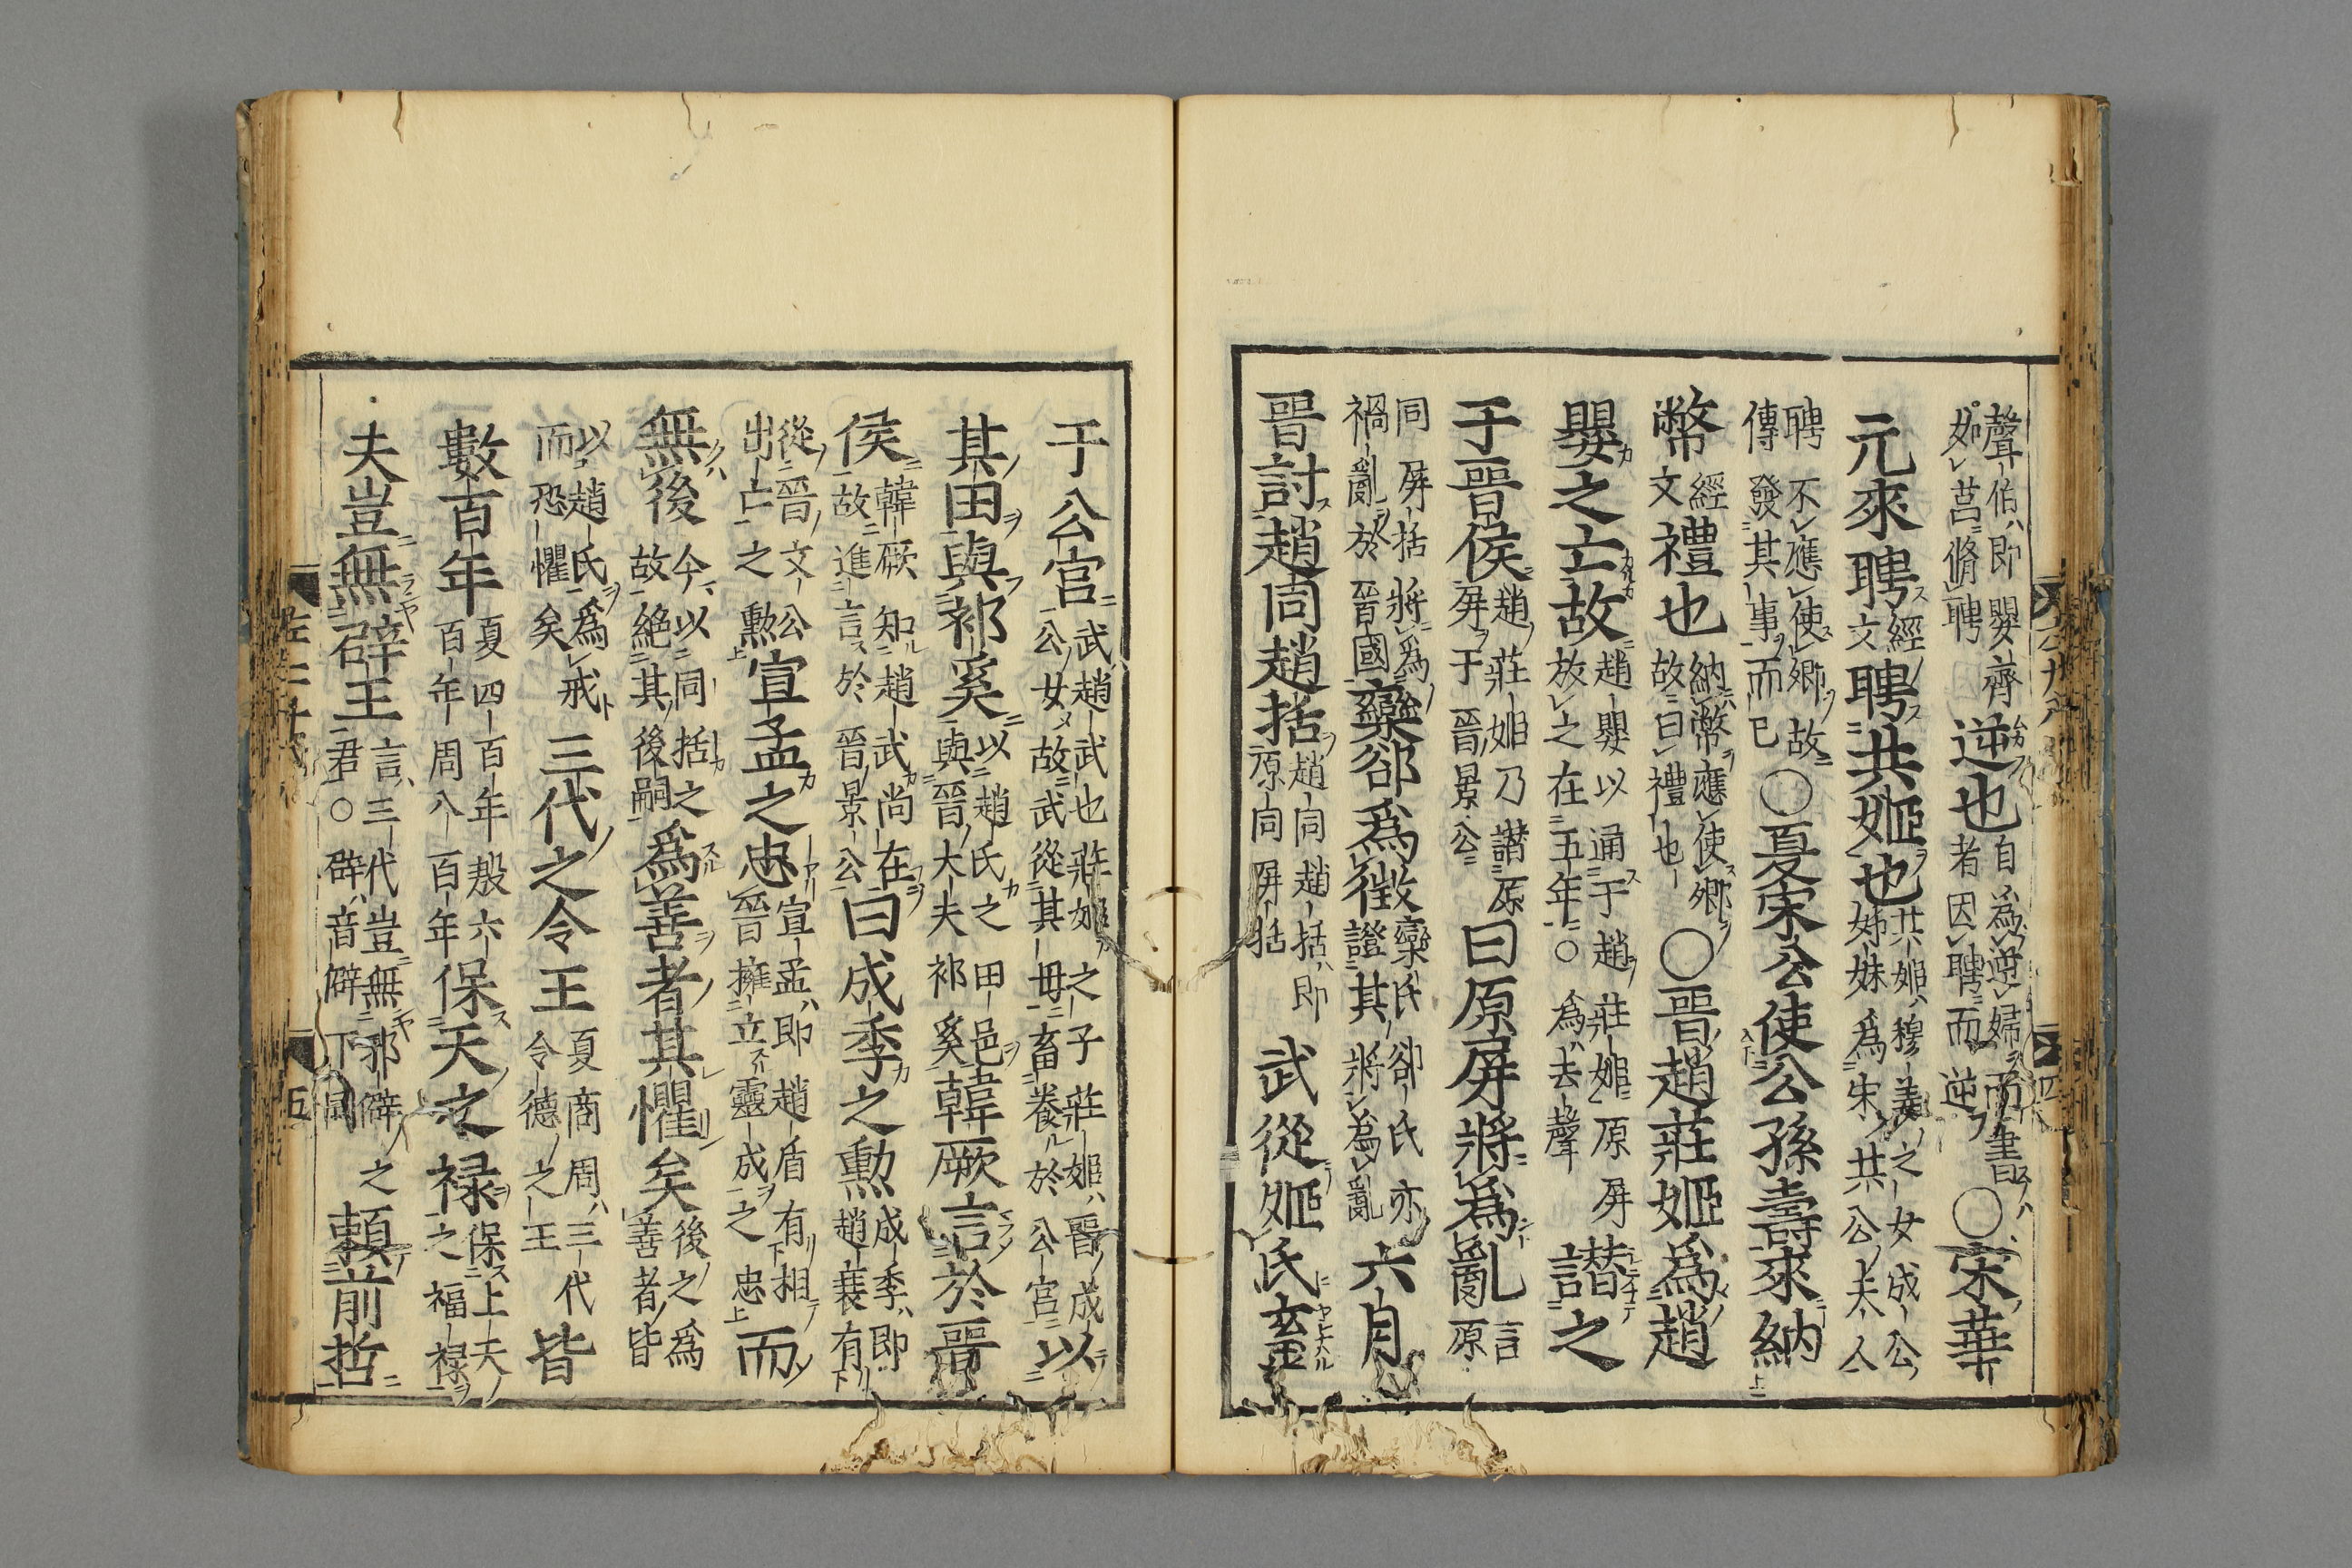 聲伯即嬰齊如莒脩聘逆也自為逆婦而書者因聘而逆○宋華
元來聘經文聘共姬也共姬穆姜之女成公姊妹為宋共公夫人
聘不應使卿故傳發其事而已○夏宋公使公孫壽來納
幣經文禮也納幣應使卿故曰禮也○晉趙莊姬為趙
嬰之亡故趙嬰以通于趙莊姬原屏放之在五年○為去聲譖之
于晉侯趙莊姬乃譖原屏于晉景公曰原屏將為亂言原
同屏括將為禍亂於晉國欒郤為徵欒氏郤氏亦證其將為亂六月
晉討趙同趙括趙同趙括即原同屏括武從姬氏畜
于公宮武趙武也莊姬之子莊姬晉成公女故武從其母畜養於公宮以
其田與祁奚以趙氏之田邑與晉大夫祁奚韓厥言於晉
侯韓厥知趙武尚在故進言於晉景公曰成季之勲成季即趙衰有
從晉文公出亡之勲宣孟之忠宣孟即趙盾有相晉擁立靈成之忠而
無後今以同括之故絶其後嗣為善者其懼矣後之為善者皆
以趙氏為戒而恐懼矣三代之令王夏商周三代令德之王皆
數百年夏四百年殷六百年周八百年保天之禄保上夫之福禄
夫豈無辟王言三代豈無邪僻之君○辟音僻下同頼前哲